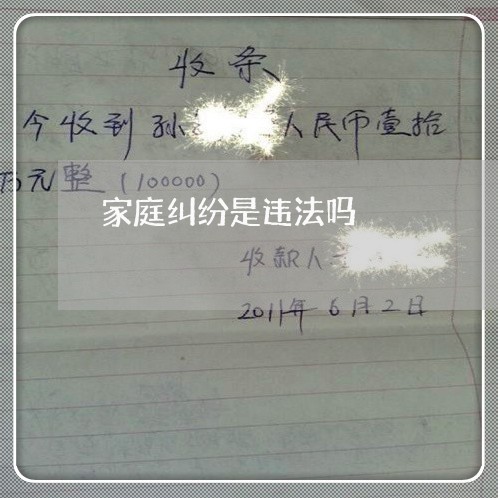 收条
今收到孙 人民币壹拾
万元整(100000)
家庭纠纷是违法吗
收款人
2011年6月2日